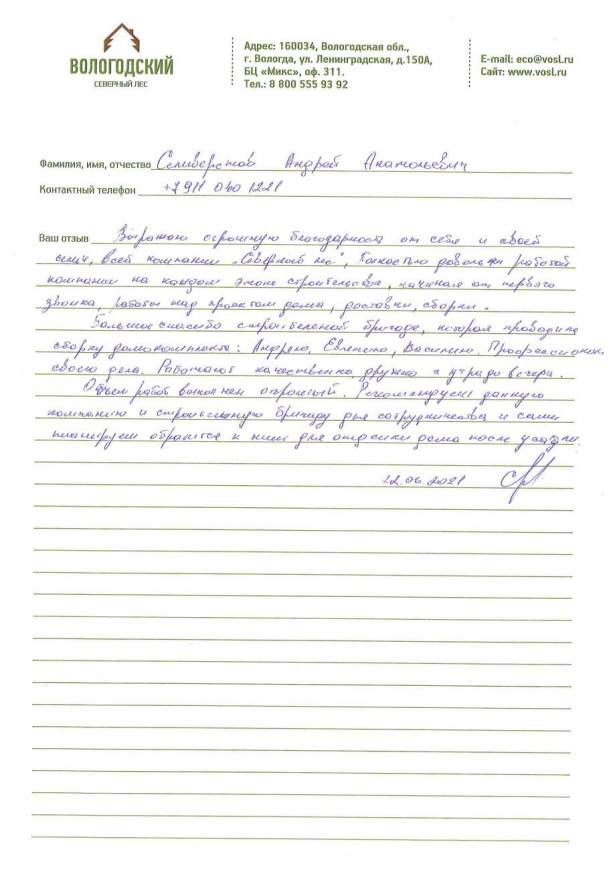 ВОЛОГОДСКИЙ
СЕВЕРНЫЙ ЛЕС
Адрес: 160034, Вологодская обл.,
г. Вологда, ул. Ленинградская, д.150А,
БЦ «Микс», оф. 311.
Тел.: 8 800 555 93 92
E-mail: eco@vosl.ru
Сайт: www.vosl.ru
Фамилия, имя, отчество Селиверстов Андрей Анатольевич
Контактный телефон +7 911 040 1221
Ваш отзыв Выражаю огромную благодарность от себя и своей
семьи, всей компании „Северный лес", полностью довольны работой
компании на каждом этапе строительства, начиная от первого
звонка, работы над проектом дома, доставки, сборки.
Большое спасибо строительной бригаде, которая проводила
сборку домокомплекта: Андрею, Евгению, Василию. Профессионалы
своего дела. Работают качественно, дружно с утра до вечера.
Объем работ выполнен огромный. Рекомендуем данную
компанию и строительную бригаду для сотрудничества и сами
планируем обратится к ним для отделки дома после усадки.
22.06.2021